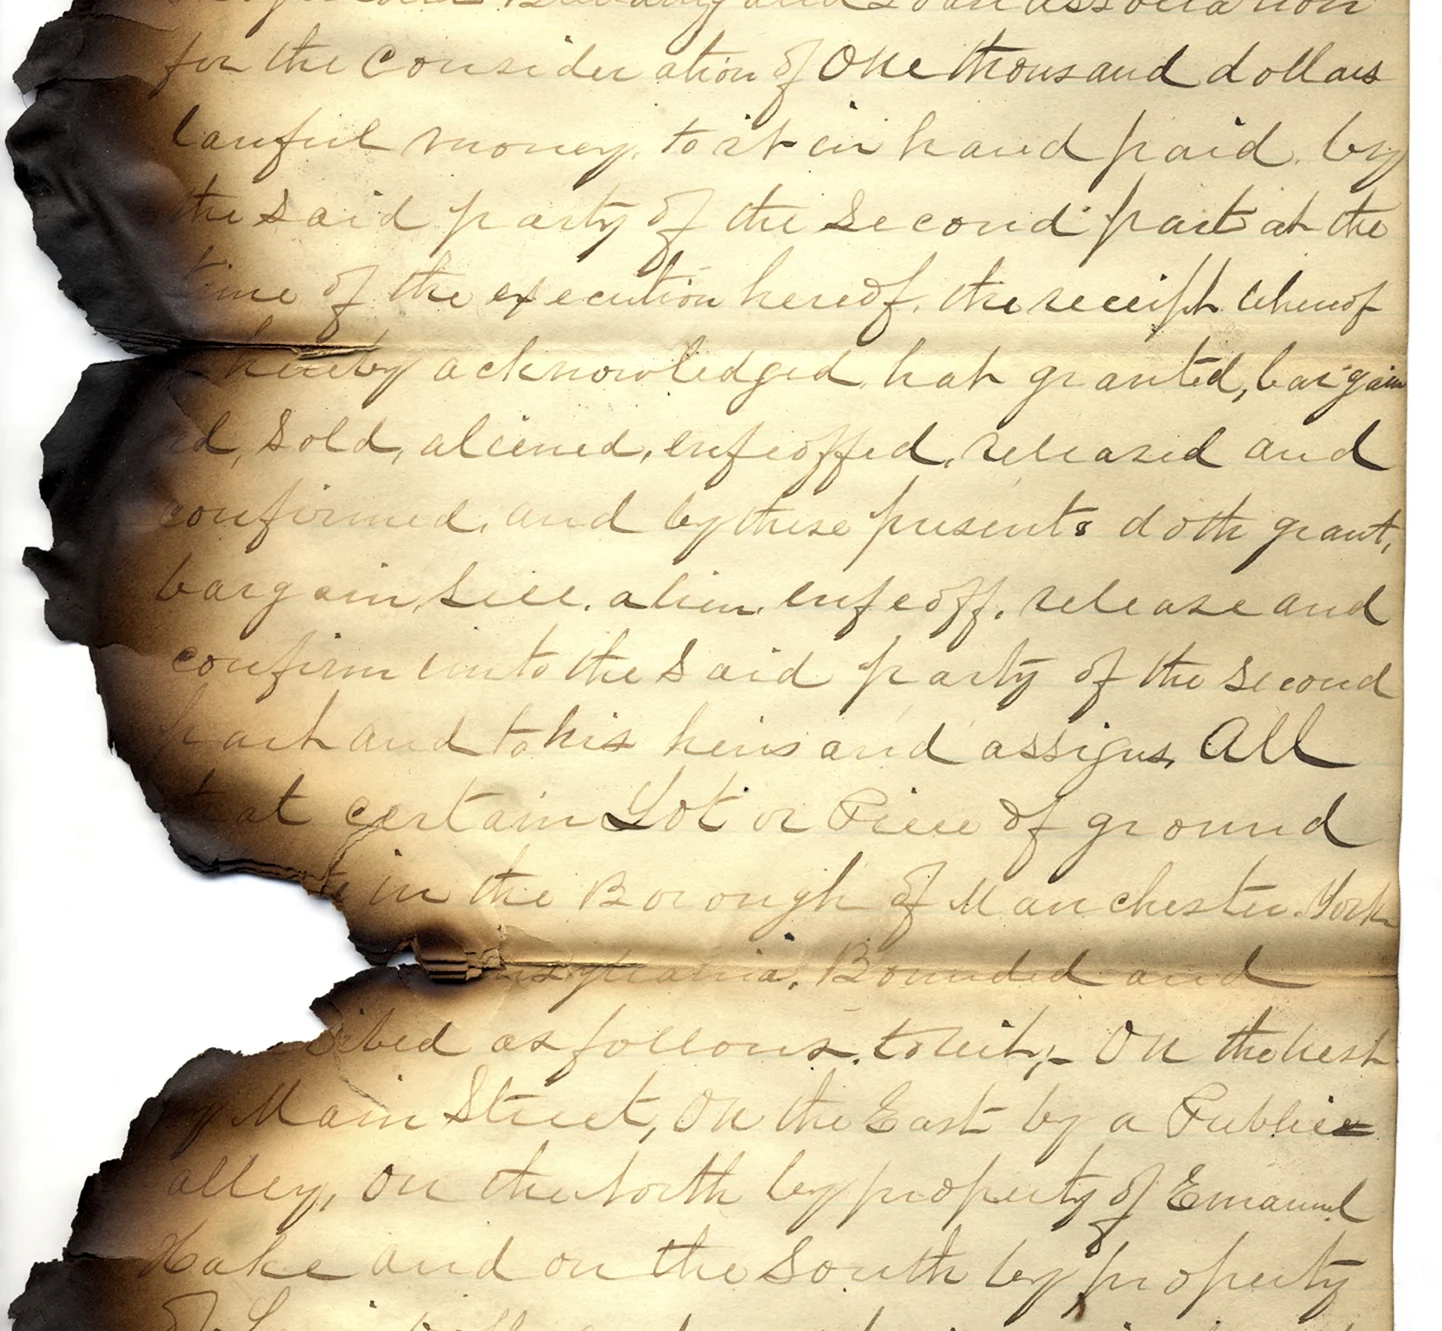 Building and Loan association
for the consideration of One thousand dollars
lawful money. to it in hand paid. by
the said party of the Second part at the
time of the execution hereof. the receipt whereof
hereby acknowledged. hath granted, bargain
ed, Sold, aliened, enfeoffed, released and
confirmed. and by these presents doth grant,
bargain, Sell. alien. enfeoff. release and
confirm unto the Said party of the Second
part and to his heirs and assigns, All
that certain Lot or Piece of ground
in the Borough of Manchester. York
nsylvania. Bounded and
ribed as follows. towit;- On the West
by Main Street, On the East by a Public
alley, On the North by property of Emanuel
Hake and on the South by property
of